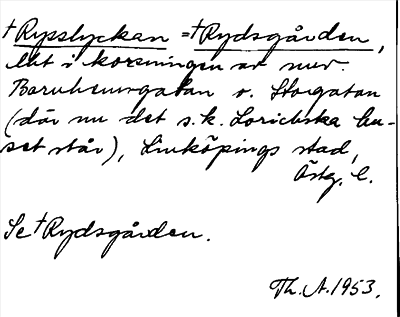 †Rysslyckan = †Rydsgården,
lät i korsningen av nuv.
Barnhemsgatan o. Storgatan
(där nu det s.k. Lorichska hu-
set står), Linköpings stad,
Östg. l.
Se †Rydsgården.
Th. A. 1953.